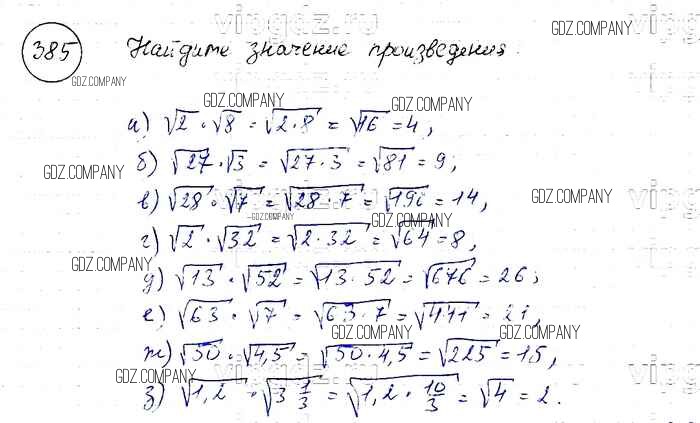 385 Найдите значение произведения.
а) √2 · √8 = √2·8 = √16 = 4,
б) √27 · √3 = √27·3 = √81 = 9;
в) √28 · √7 = √28·7 = √196 = 14,
г) √2 · √32 = √2·32 = √64 = 8,
д) √13 · √52 = √13·52 = √676 = 26;
е) √63 · √7 = √63·7 = √441 = 21,
ж) √50 · √4,5 = √50·4,5 = √225 = 15,
з) √1,2 · √3 1/3 = √1,2 · 10/3 = √4 = 2.
GDZ.COMPANY
GDZ.COMPANY
GDZ.COMPANY
GDZ.COMPANY
GDZ.COMPANY
GDZ.COMPANY
GDZ.COMPANY
GDZ.COMPANY
GDZ.COMPANY
GDZ.COMPANY
GDZ.COMPANY
GDZ.COMPANY
GDZ.COMPANY
vipgdz.ru